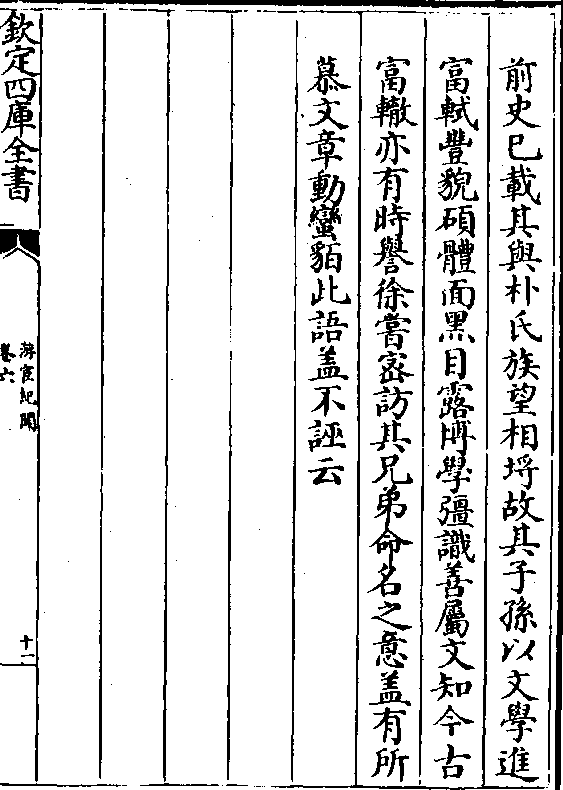 前史已載其與朴氏族望相埒故其子孫以文學進
富軾豐貌碩體面黑目露博學彊識善屬文知今古
富轍亦有時譽徐嘗宻訪其兄弟命名之意盖有所
慕文章動蠻貊此語盖不誣云
欽定四庫全書
游宦紀聞
卷六
十一